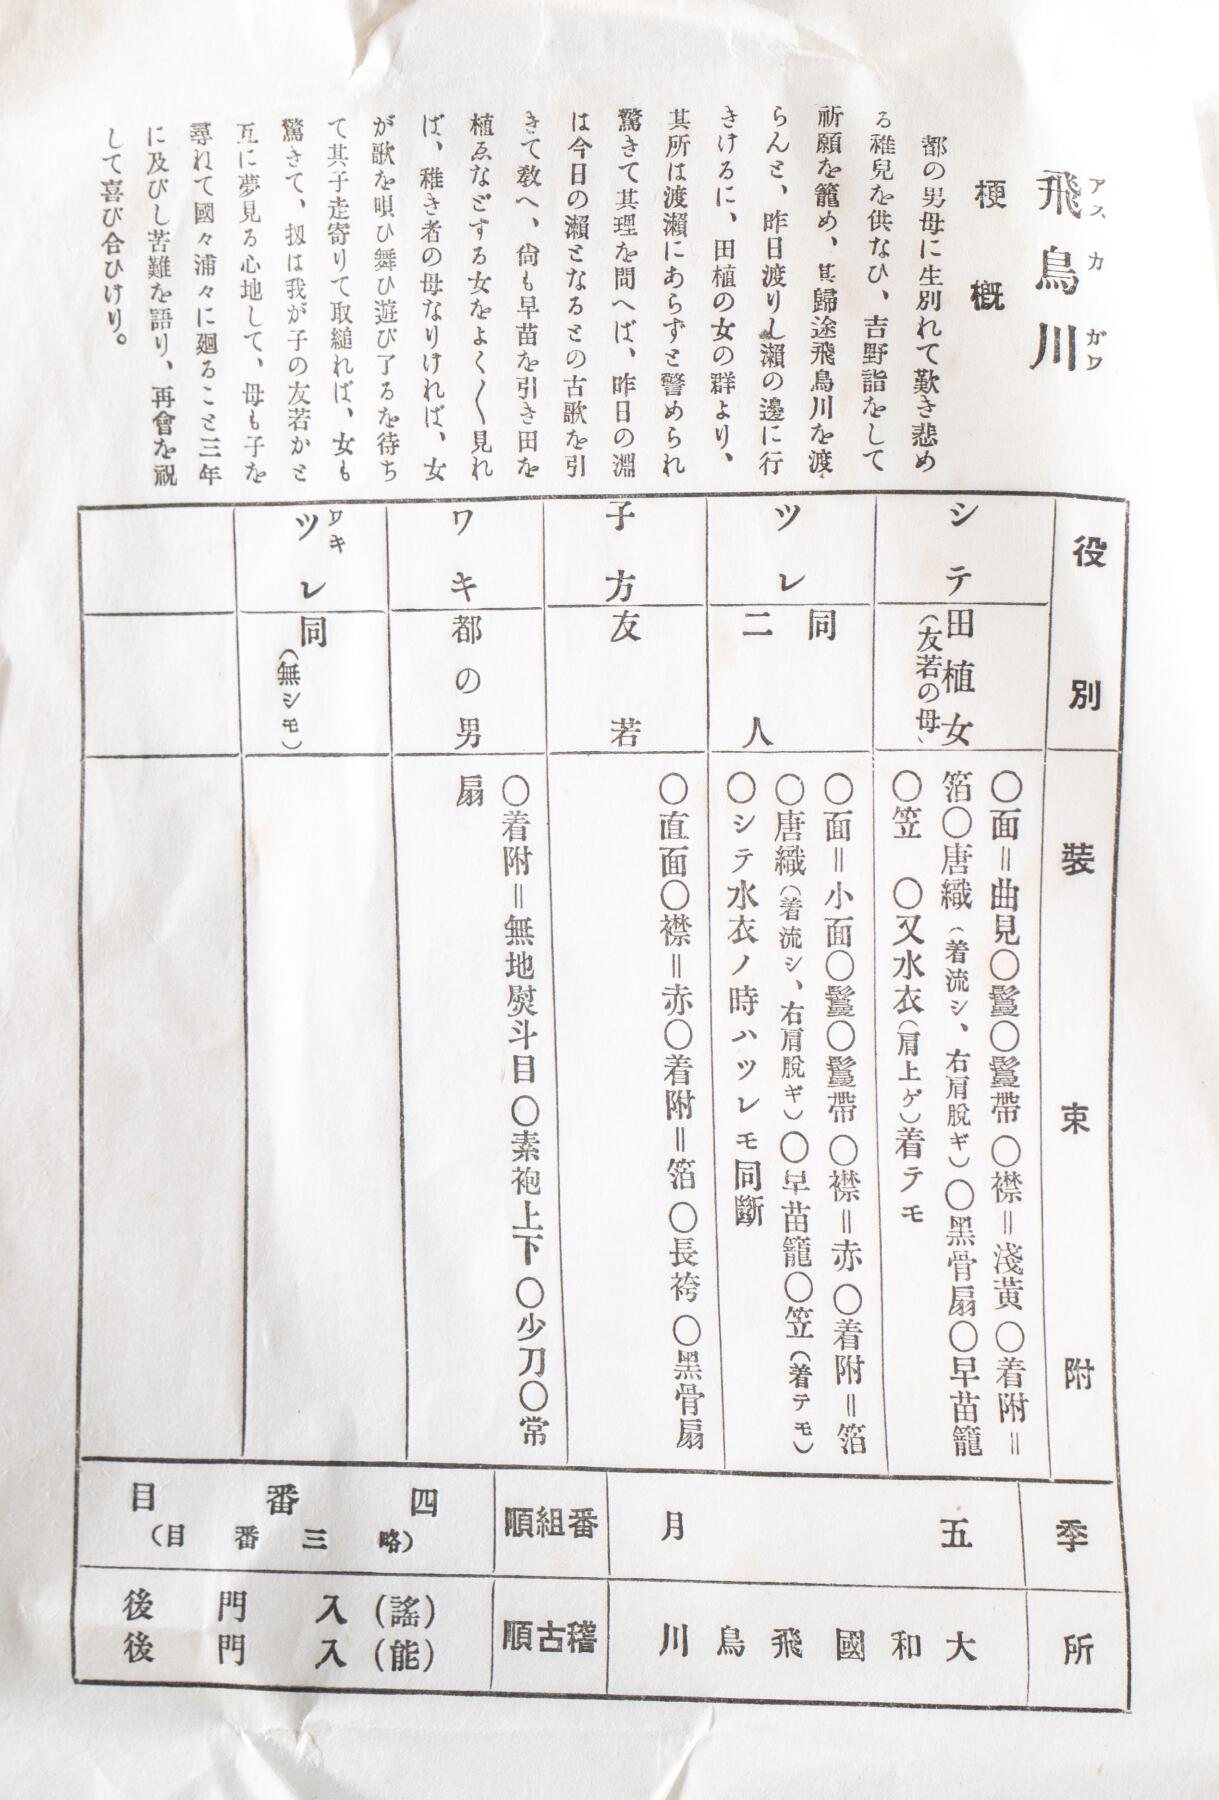 飛鳥川
アスカガワ
梗概
都の男母に生別れて歎き悲め
る稚兒を供なひ、吉野詣をして
祈願を籠め、其歸途飛鳥川を渡
らんと、昨日渡りし瀬の邊に行
きけるに、田植の女の群より、
其所は渡瀬にあらずと警められ
驚きて其理を問へば、昨日の淵
は今日の瀬となるとの古歌を引
きて敎へ、尙も早苗を引き田を
植ゑなどする女をよく〱見れ
ば、稚き者の母なりければ、女
が歌を唄ひ舞ひ遊び了るを待ち
て其子走寄りて取縋れば、女も
驚きて、扨は我が子の友若かと
互に夢見る心地して、母も子を
尋れて國々浦々に廻ること三年
に及びし苦難を語り、再會を祝
して喜び合ひけり。
役別
裝束附
シテ
田植女
（友若の母）
〇面＝曲見〇鬘〇鬘帶〇襟＝淺黃〇着附＝
箔〇唐織（着流シ、右肩脫ギ）〇黑骨扇〇早苗籠
〇笠　〇又水衣（肩上ゲ）着テモ
ツレ
同
二人
〇面＝小面〇鬘〇鬘帶〇襟＝赤〇着附＝箔
〇唐織（着流シ、右肩脫ギ）〇早苗籠〇笠（着テモ）
〇シテ水衣ノ時ハツレモ同斷
子方
友若
〇直面〇襟＝赤〇着附＝箔〇長袴〇黑骨扇
ワキ
都の男
〇着附＝無地熨斗目〇素袍上下〇少刀〇常
扇
ワキ
ツレ
同
（無シモ）
季
五月
番組順
四番目
（略三番目）
所
大和國飛鳥川
稽古順
（謠）入門後
（能）入門後